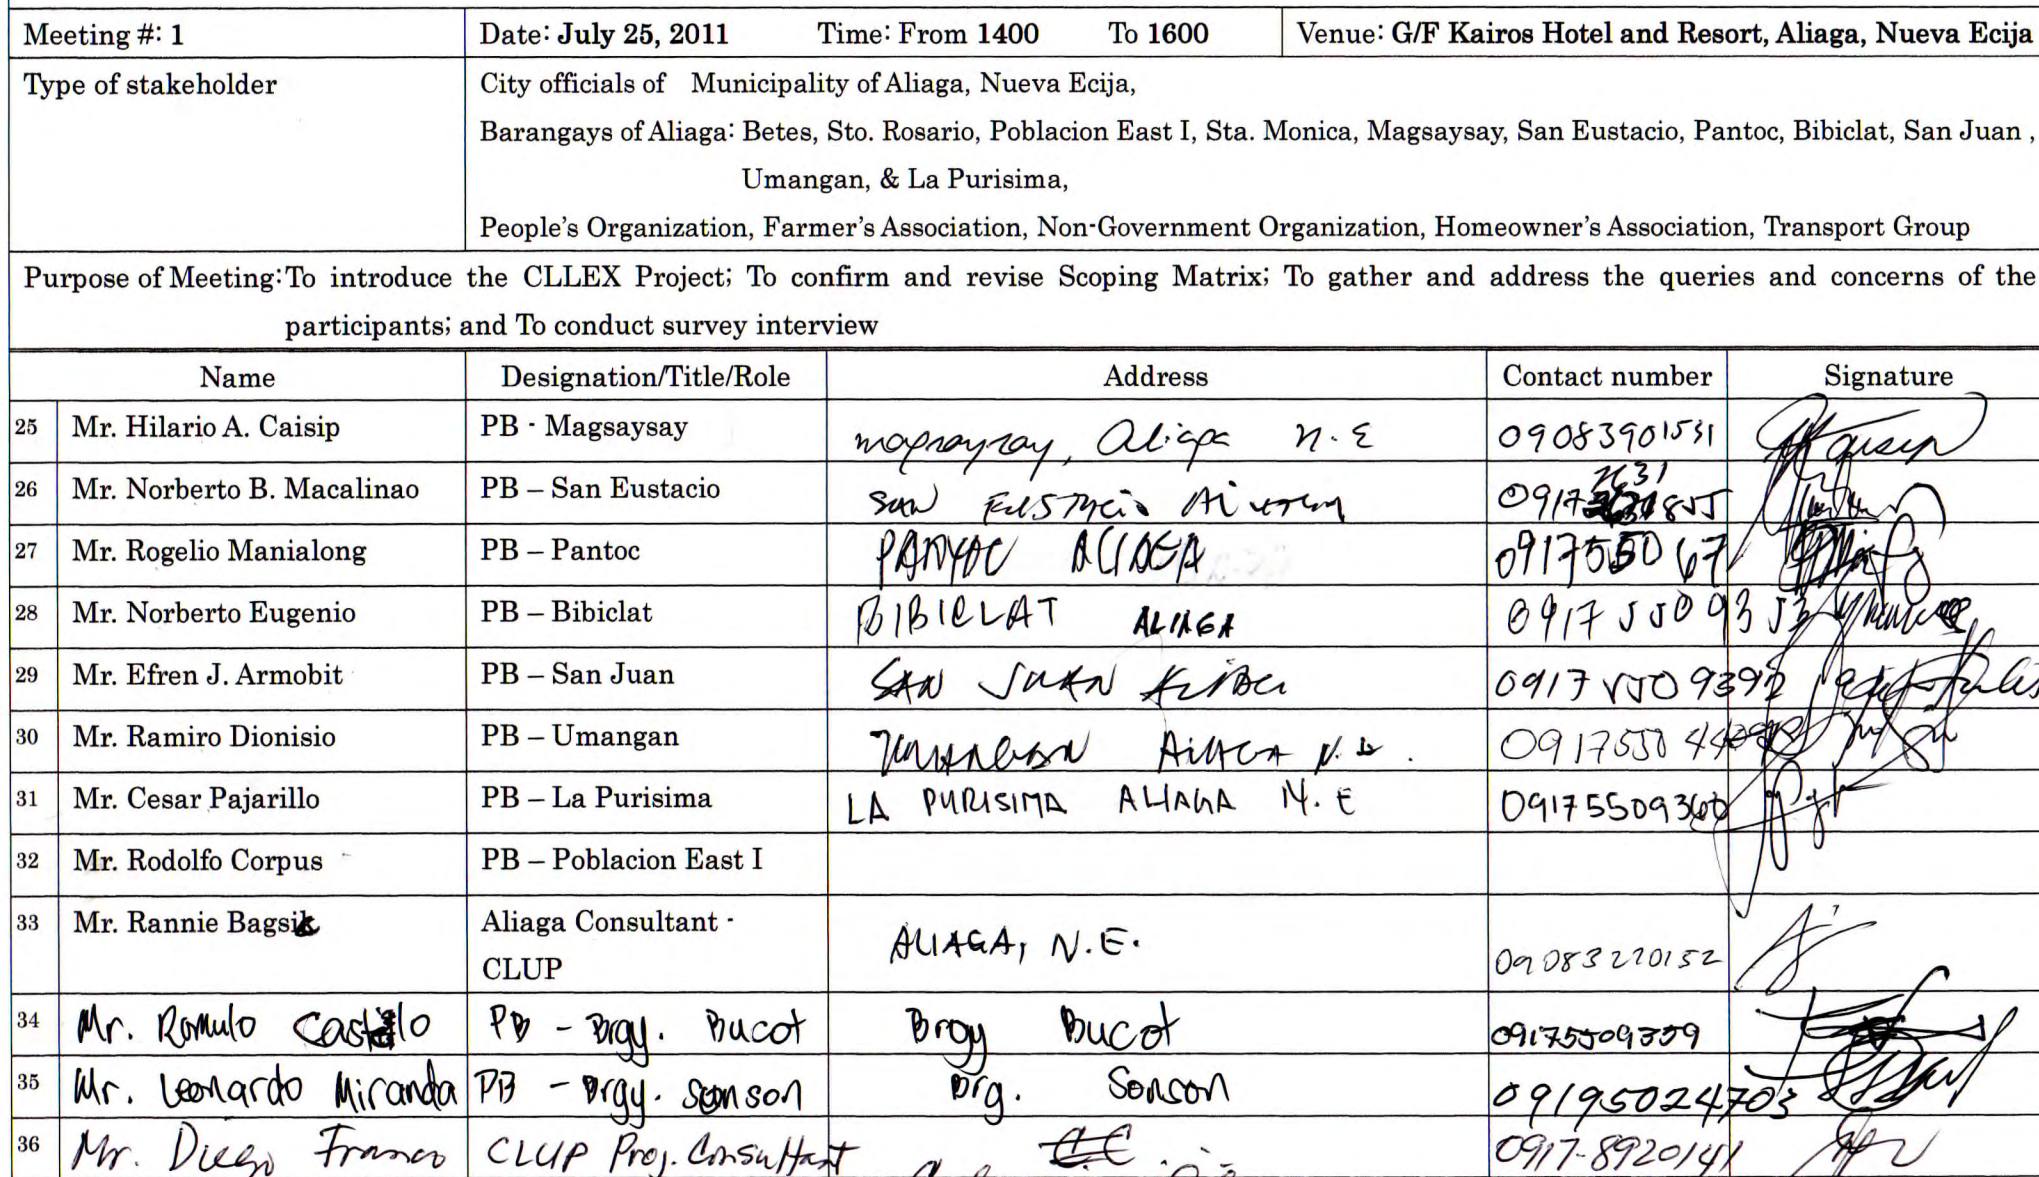 Meeting #: 1 Date: July 25, 2011 Time: From 1400 To 1600 Venue: G/F Kairos Hotel and Resort, Aliaga, Nueva Ecija
Type of stakeholder City officials of Municipality of Aliaga, Nueva Ecija,
Barangays of Aliaga: Betes, Sto. Rosario, Poblacion East I, Sta. Monica, Magsaysay, San Eustacio, Pantoc, Bibiclat, San Juan ,
Umangan, & La Purisima,
People's Organization, Farmer's Association, Non-Government Organization, Homeowner's Association, Transport Group
Purpose of Meeting: To introduce the CLLEX Project; To confirm and revise Scoping Matrix; To gather and address the queries and concerns of the
participants; and To conduct survey interview
Name Designation/Title/Role Address Contact number Signature
25 Mr. Hilario A. Caisip PB - Magsaysay Magsaysay, Aliaga N.E 09083901531
26 Mr. Norberto B. Macalinao PB – San Eustacio San Eustacio
27 Mr. Rogelio Manialong PB – Pantoc PANTOC ALIAGA
28 Mr. Norberto Eugenio PB – Bibiclat BIBICLAT ALIAGA 0917 5509353
29 Mr. Efren J. Armobit PB – San Juan SAN JUAN
30 Mr. Ramiro Dionisio PB – Umangan UMANGAN ALIAGA N.E.
31 Mr. Cesar Pajarillo PB – La Purisima LA PURISIMA ALIAGA N.E 09175509360
32 Mr. Rodolfo Corpus PB – Poblacion East I
33 Mr. Rannie Bagsik Aliaga Consultant -
CLUP ALIAGA, N.E. 09083220152
34 Mr. Romulo Castilo PB - Brgy. Bucot Brgy Bucot 09175509359
35 Mr. Leonardo Miranda PB - Brgy. Sonson Brg. Sonson 09195024703
36 Mr. Diego Franco CLUP Proj. Consultant 0917-8920141